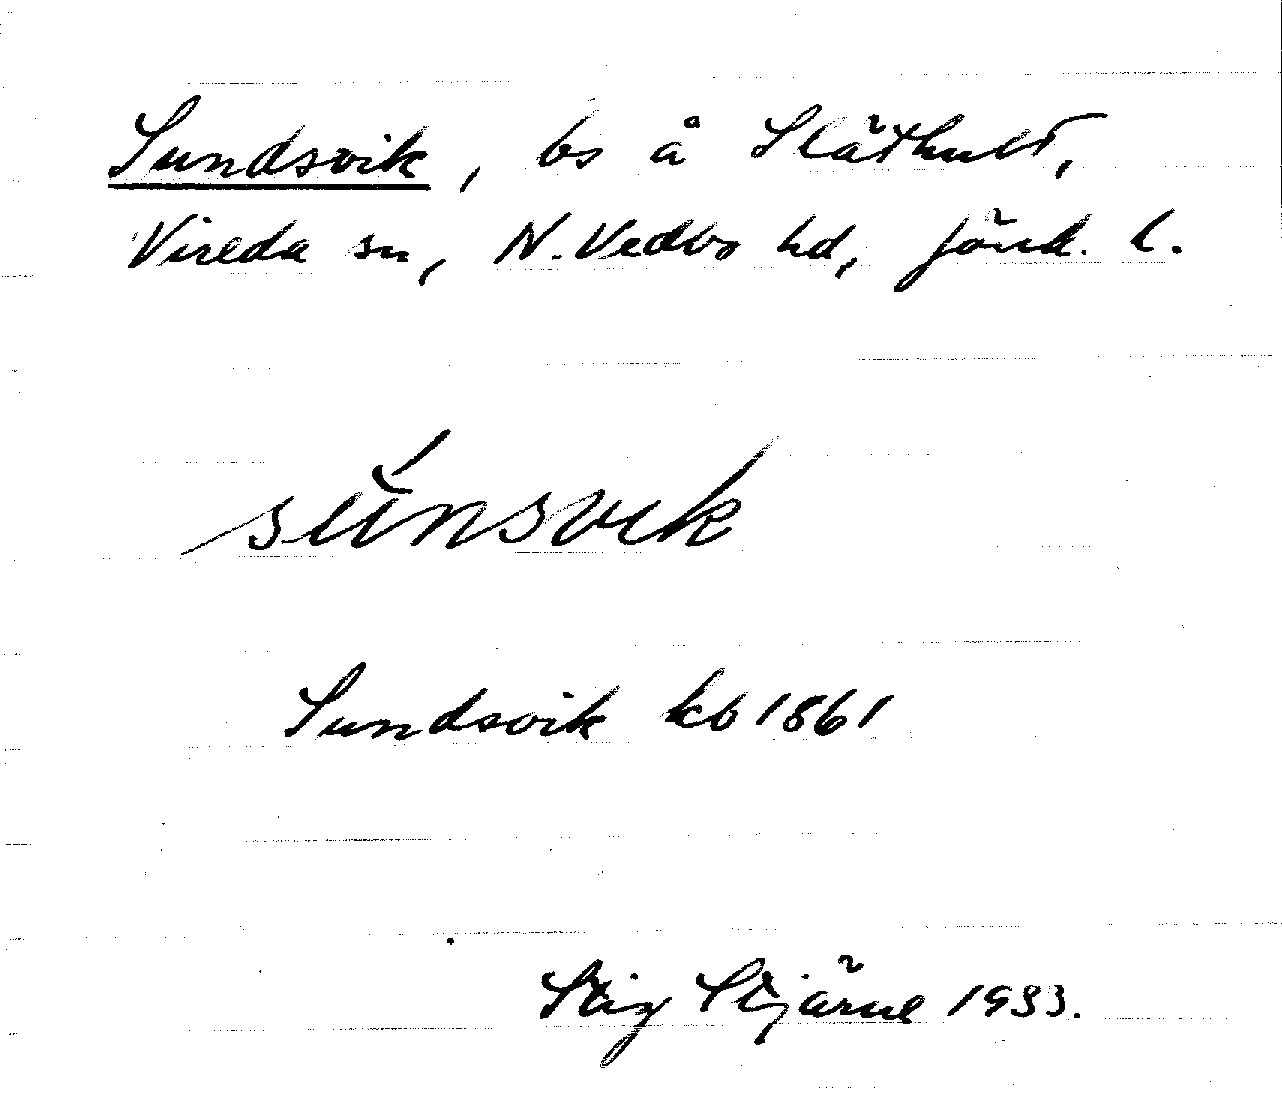 Sundsvik, bs å Släthult,
Vireda sn, N. Vedbo hd, Jönk. l.
súnsvik
Sundsvik kb 1861
Stig Stjärne 1933.